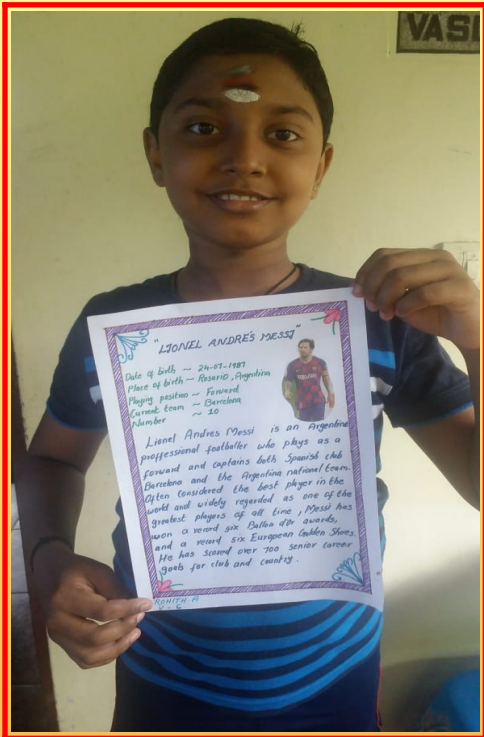 VASE
"LIONEL ANDRÉS MESSI"
Date of birth ~ 24-07-1987
Place of birth ~ Rosario, Argentina
Playing position ~ Forward
Current team ~ Barcelona
Number ~ 10
Lionel Andres Messi is an Argentine
proffessional footballer who plays as a
forward and captains both Spanish club
Barcelona and the Argentina national team.
Often considered the best player in the
world and widely regarded as one of the
greatest players of all time, Messi has
won a record six Ballon d'or awards,
and a record six European Golden Shoes.
He has scored over 700 senior career
goals for club and country.
ROHITH.A